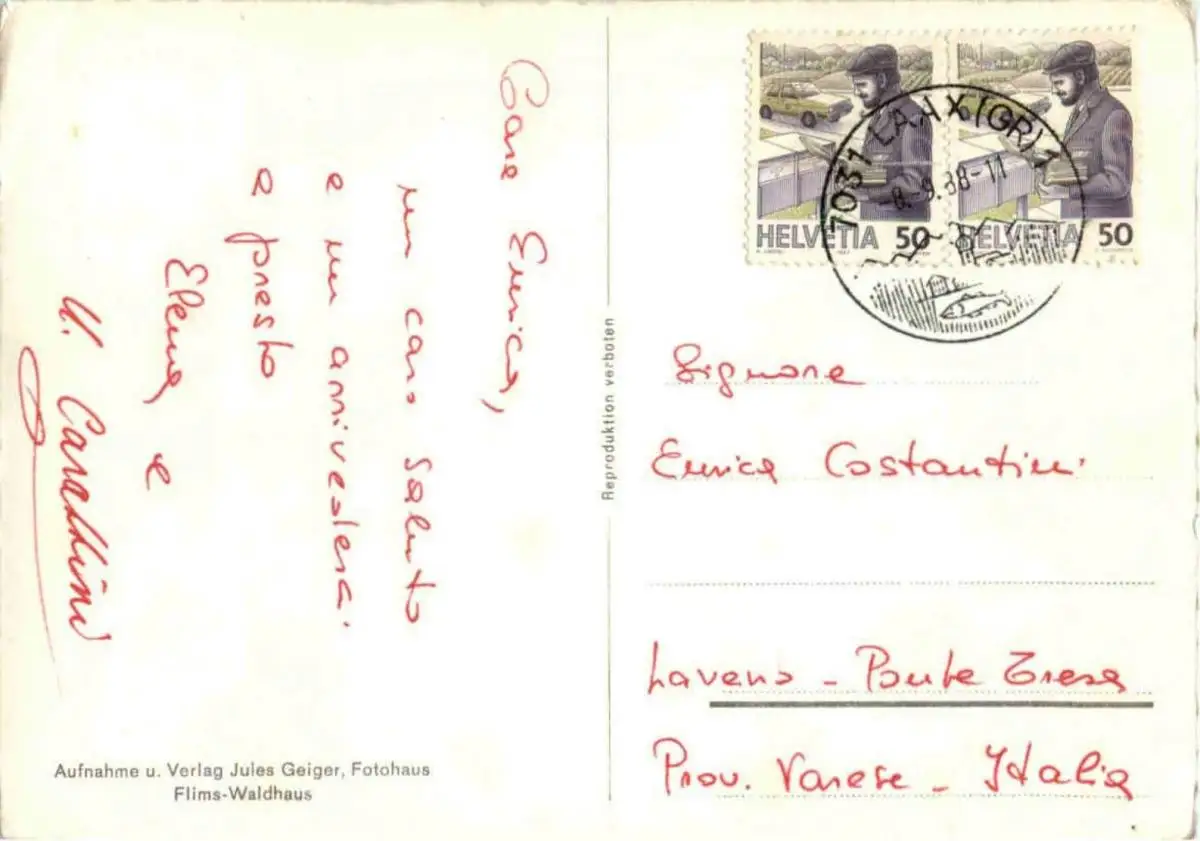 Cara Enrica,
un caro saluto
e un arrivederci
a presto
Elena e
Aufnahme u. Verlag Jules Geiger, Fotohaus
Flims-Waldhaus
Reproduktion verboten
HELVETIA 50
HELVETIA 50
7031 LAAX (GR) 1
-8.-9.88-11
Signora
Enrica Costantini
Laveno - Ponte Tresa
Prov. Varese - Italia